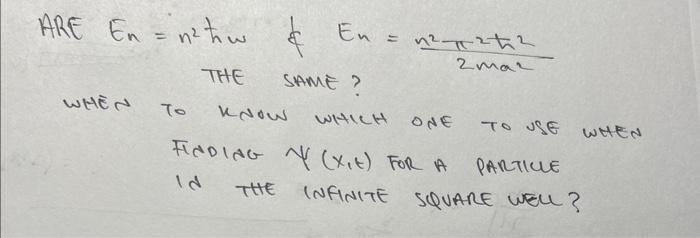 ARE En = n²ħω & En = n²π²ħ² / 2ma²
THE SAME?
WHEN TO KNOW WHICH ONE TO USE WHEN
FINDING Ψ(x,t) FOR A PARTICLE
IN THE INFINITE SQUARE WELL?